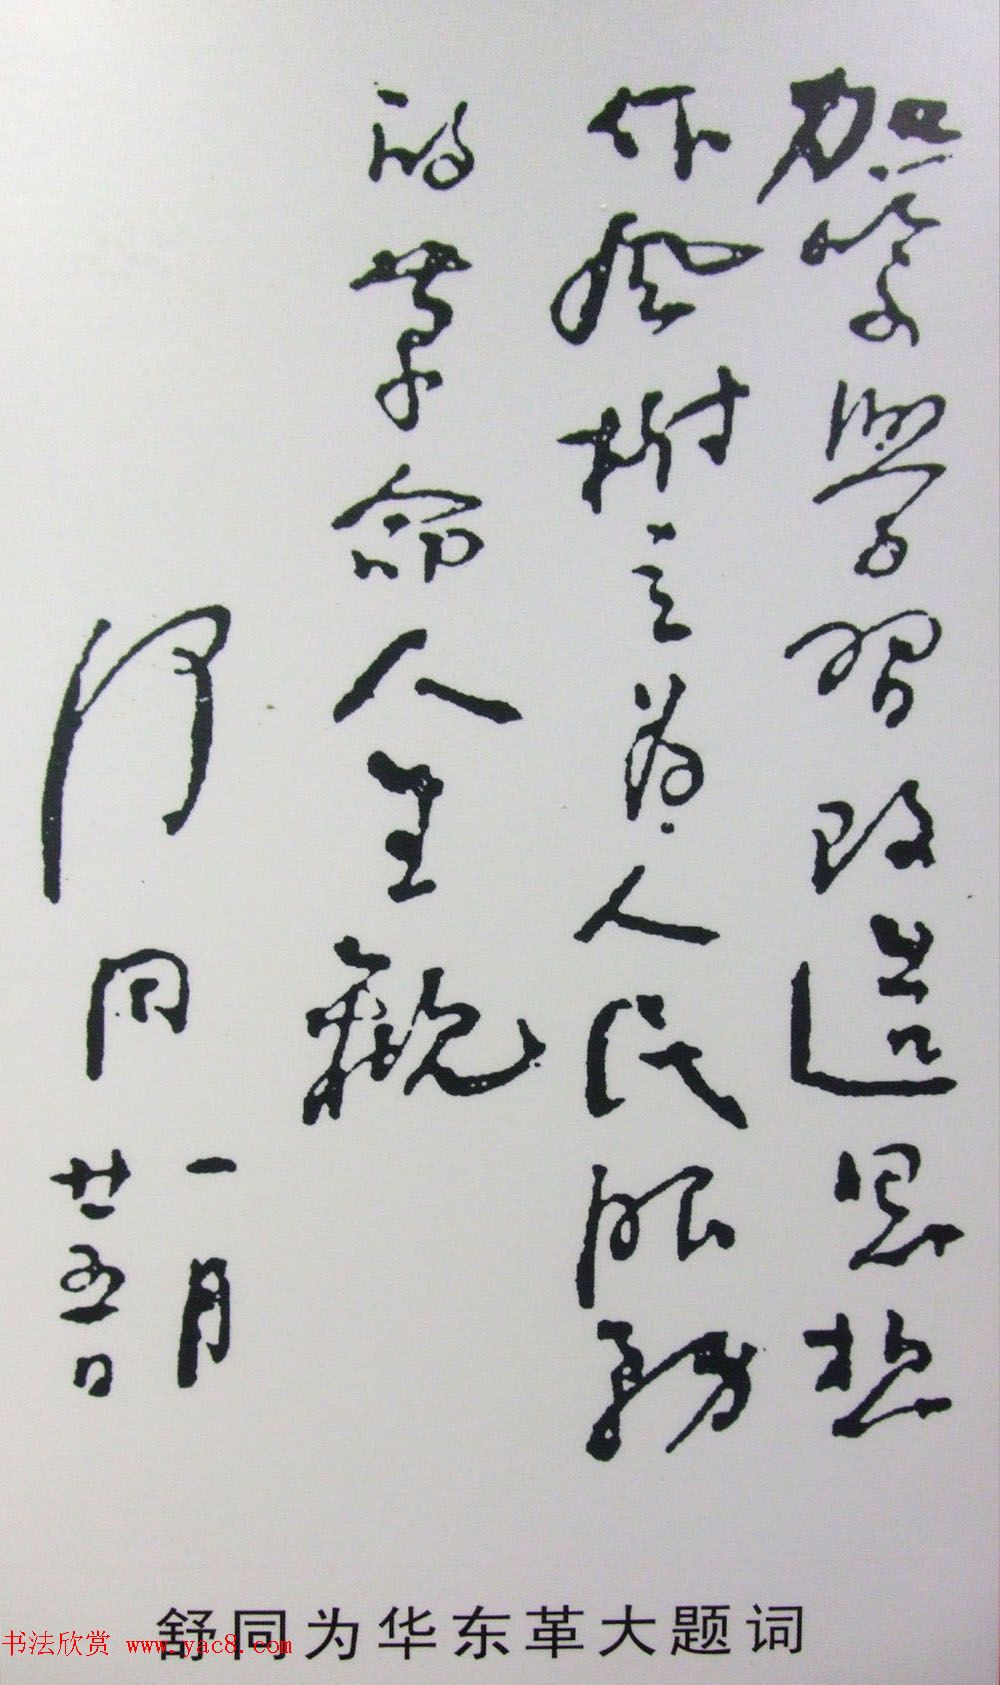 加緊學習改造思想
作風樹立為人民服務
的革命人生觀
舒同
一月
廿五日
舒同为华东革大题词
书法欣赏 www.yac8.com